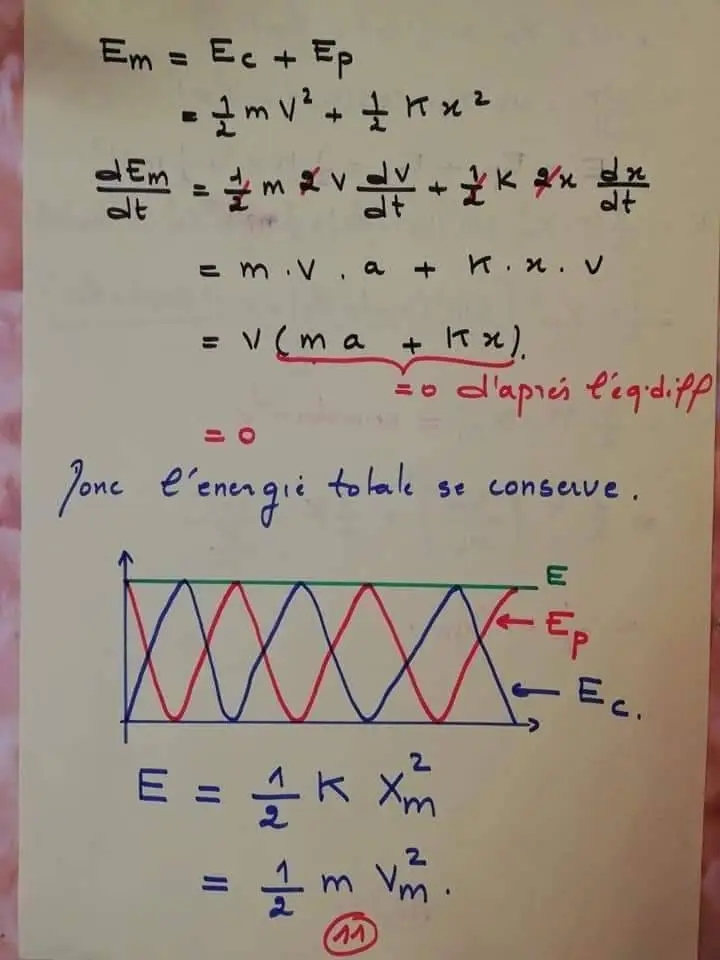 Em = Ec + Ep
= 1/2 m V² + 1/2 K x²
dEm/dt = 1/2 m 2 v dv/dt + 1/2 K 2x dx/dt
= m . V . a + K . x . v
= V (m a + K x).
= 0 d'aprés l'éq.diff
= 0
Donc l'énergie totale se conserve.
E
Ep
Ec.
E = 1/2 K Xm²
= 1/2 m Vm².
11